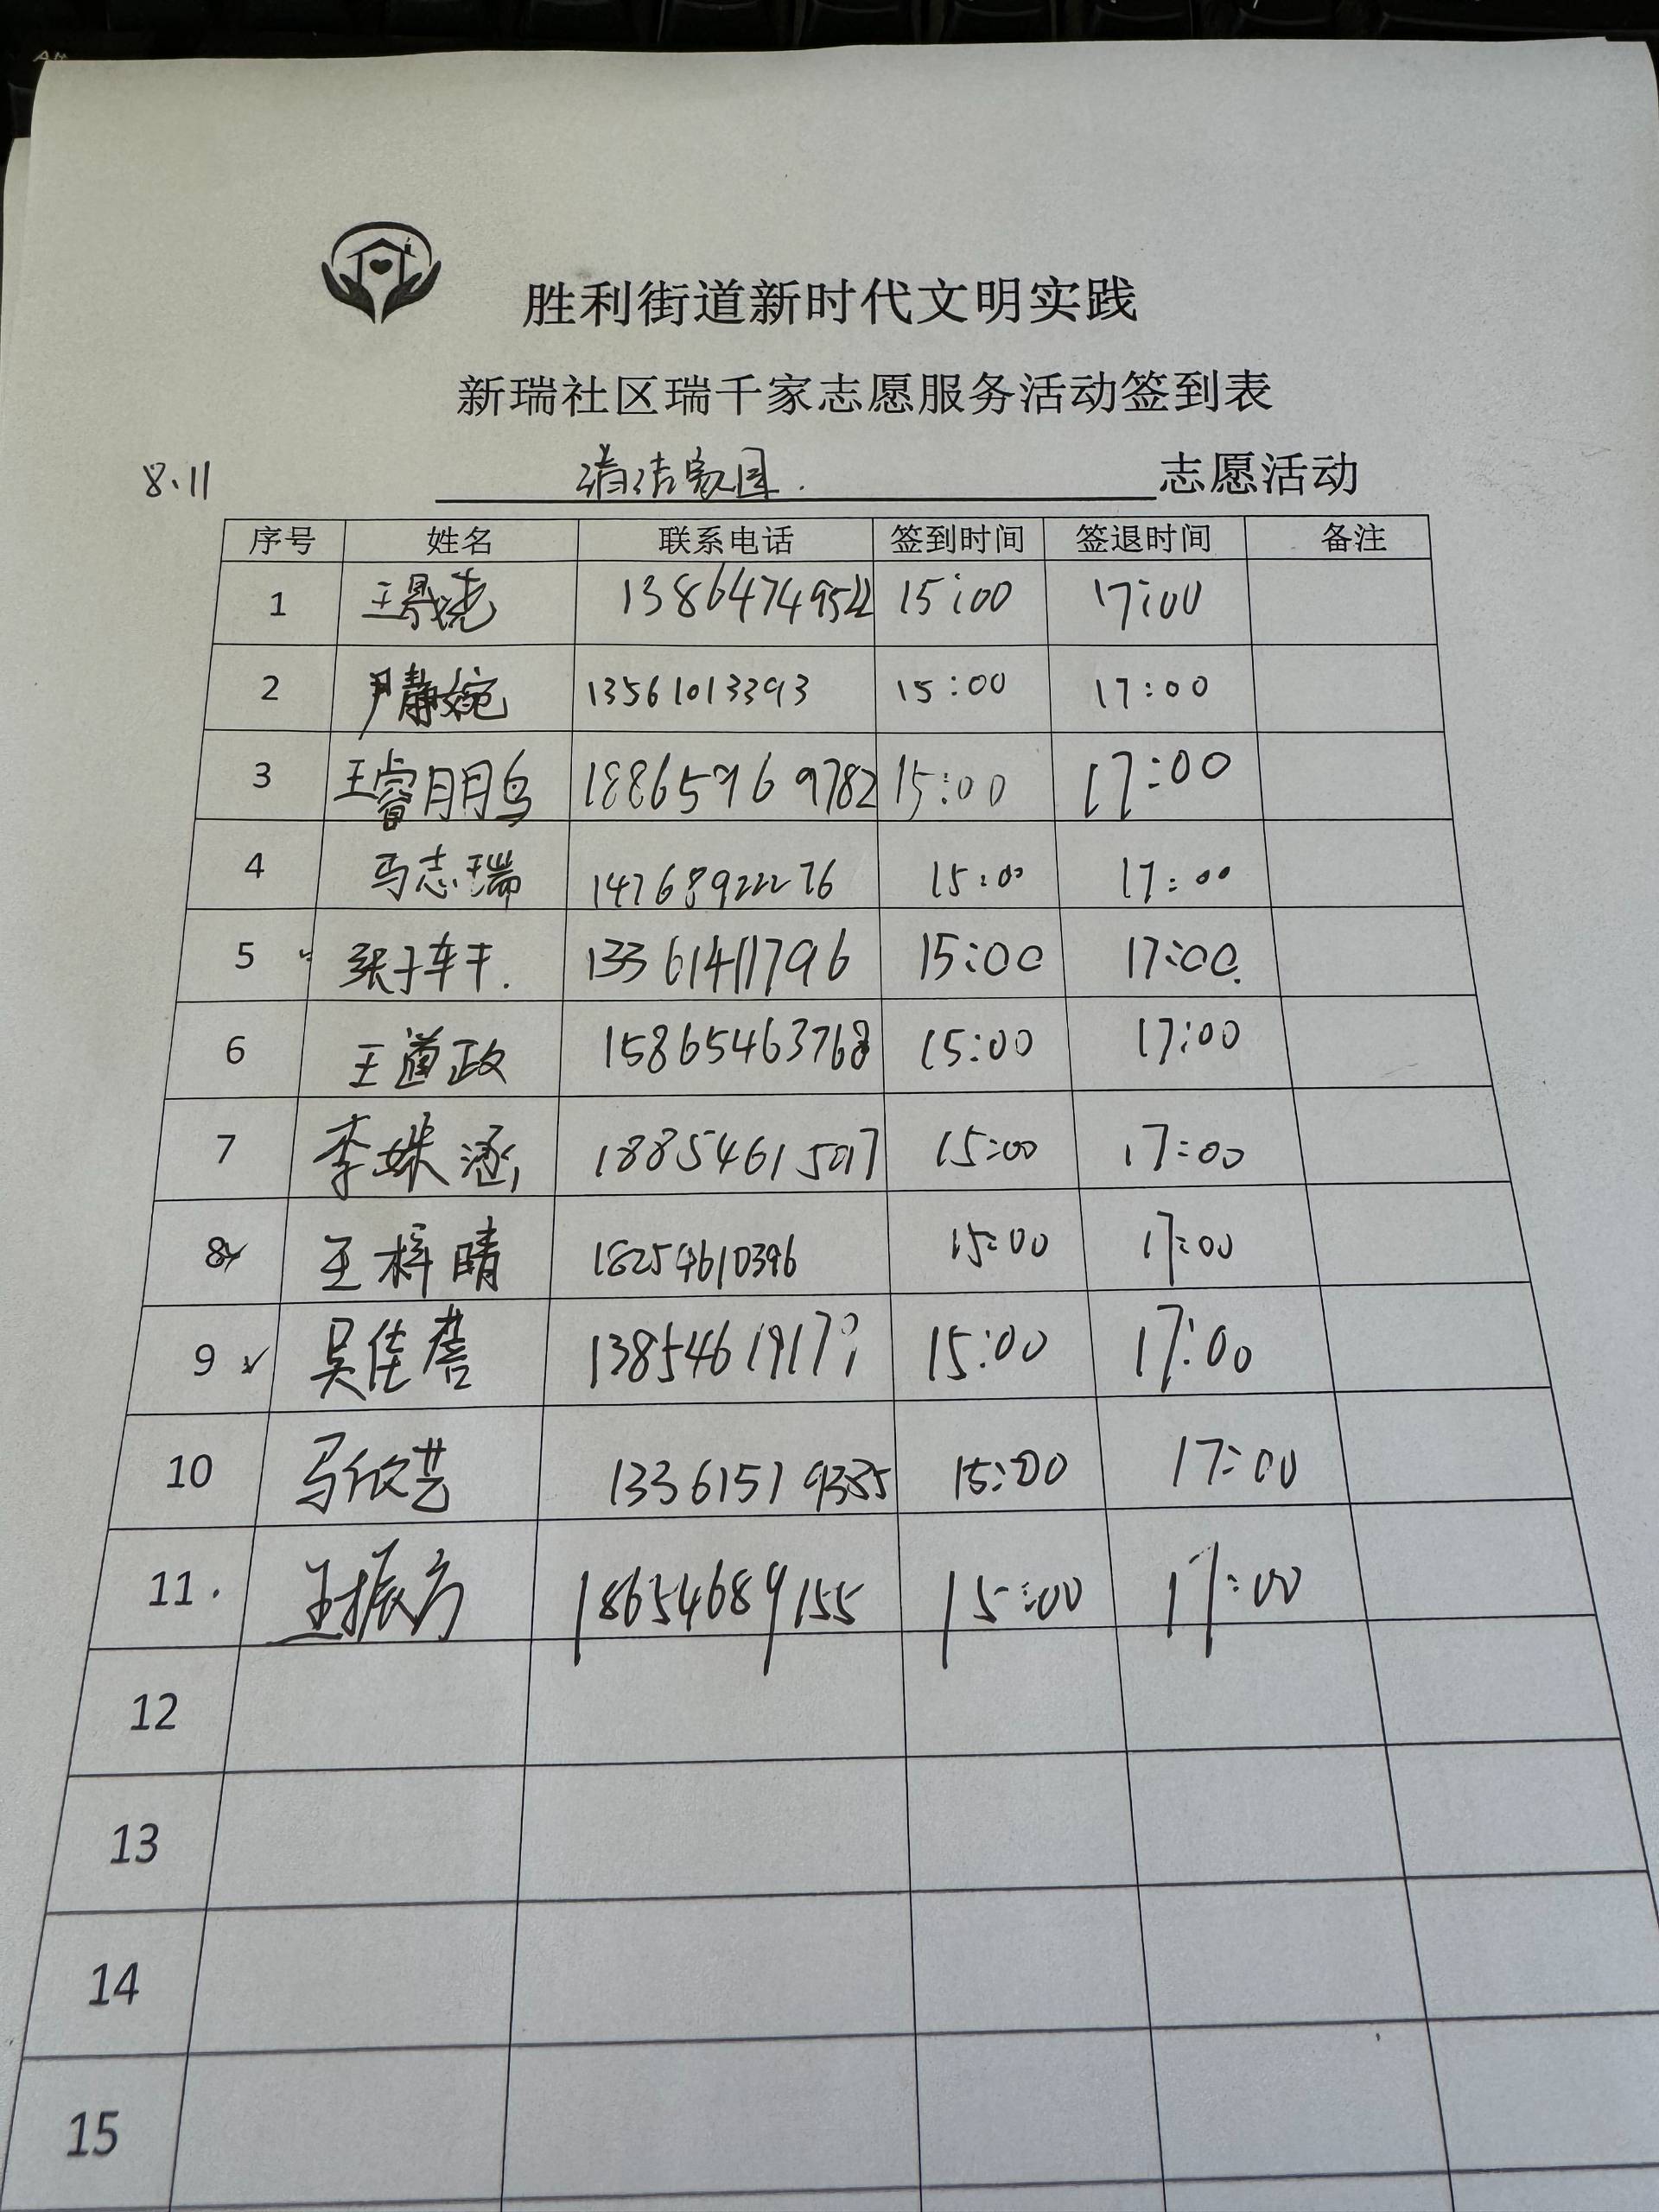 胜利街道新时代文明实践
新瑞社区瑞千家志愿服务活动签到表
8.11 清洁家园. 志愿活动
序号 姓名 联系电话 签到时间 签退时间 备注
1 13864749522 15:00 17:00
2 尹静婉 13561013393 15:00 17:00
3 王睿鹏 18865769782 15:00 17:00
4 马志瑞 14768922276 15:00 17:00
5 张子轩. 13361411796 15:00 17:00
6 王道政 15865463768 15:00 17:00
7 李姝涵 18854615017 15:00 17:00
8 王梓晴 18254610396 15:00 17:00
9 吴佳 15:00 17:00
10 马欣艺 15:00 17:00
11 王振方 18654689155 15:00 17:00
12
13
14
15